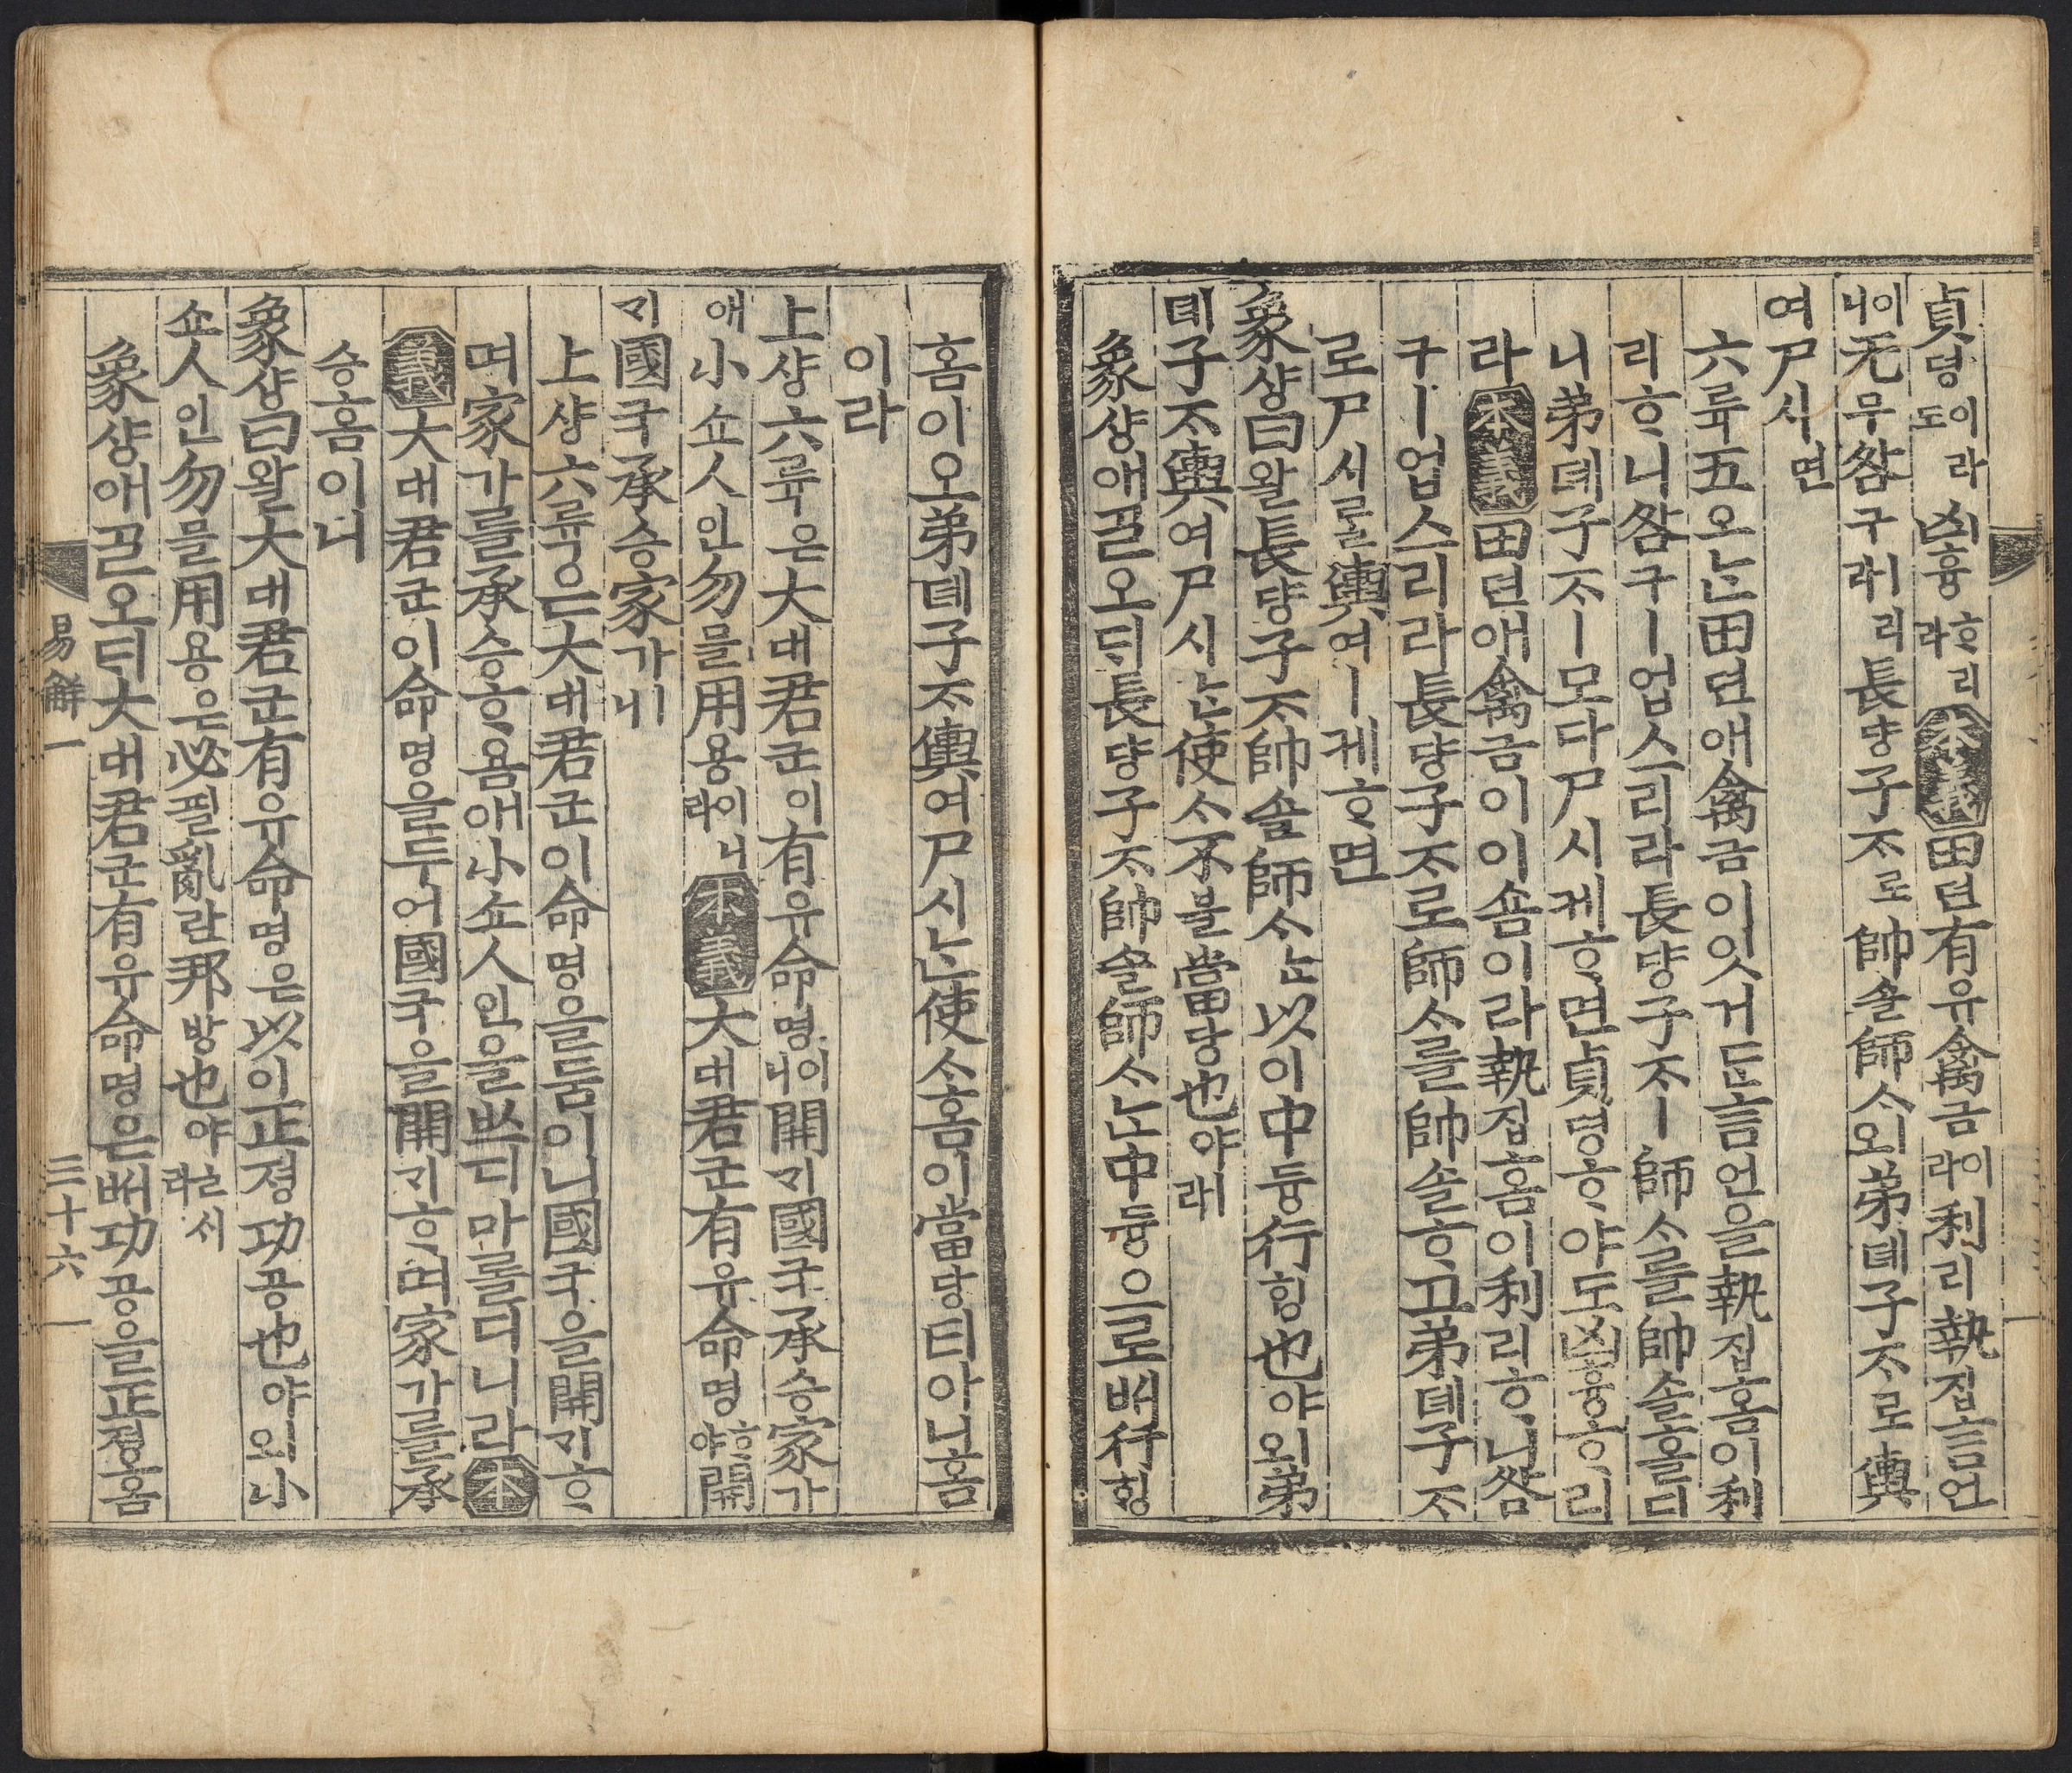 貞뎡이라도凶흉ᄒᆞ리라本義田뎐有유禽금이라利리執집言언
이니无무咎구ㅣ리라長댱子ᄌᆞ로帥솔師ᄉᆞㅣ오弟뎨子ᄌᆞ로輿
여尸시면
六륙五오ᄂᆞᆫ田뎐애禽금이잇거든言언을執집홈이利
리ᄒᆞ니咎구ㅣ업스리라長댱子ᄌᆞㅣ師ᄉᆞ를帥솔홀디
니弟뎨子ᄌᆞㅣ모다尸시케ᄒᆞ면貞뎡ᄒᆞ야도凶흉ᄒᆞ리
라本義田뎐애禽금이이숌이라執집홈이利리ᄒᆞ니咎
구ㅣ업스리라長댱子ᄌᆞ로師ᄉᆞ를帥솔ᄒᆞ고弟뎨子ᄌᆞ
로尸시ᄅᆞᆯ輿여ㅣ케ᄒᆞ면
象샹曰왈長댱子ᄌᆞ帥솔師ᄉᆞᄂᆞᆫ以이中듕行ᄒᆡᆼ也야ㅣ오弟
뎨子ᄌᆞ輿여尸시ᄂᆞᆫ使ᄉᆞ不블當당也야ㅣ라
象샹애ᄀᆞᆯ오ᄃᆡ長댱子ᄌᆞ帥솔師ᄉᆞᄂᆞᆫ中듕으로ᄡᅥ行ᄒᆡᆼ
홈이오弟뎨子ᄌᆞ輿여尸시ᄂᆞᆫ使ᄉᆞ홈이當당티아니홈
이라
上샹六륙은大대君군이有유命명이니開ᄀᆡ國국承승家가
애小쇼人인勿믈用용이니라本義大대君군有유命명ᄒᆞ야開
ᄀᆡ國국承승家가ㅣ니
上샹六륙은大대君군이命명을둠이니國국을開ᄀᆡᄒᆞ
며家가를承승ᄒᆞ욤애小쇼人인을ᄡᅳ디마롤디니라本
義大대君군이命명을두어國국을開ᄀᆡᄒᆞ며家가를承
승홈이니
象샹曰왈大대君군有유命명은以이正졍功공也야ㅣ오小
쇼人인勿믈用용은必필亂란邦방也야ㄹᄉᆡ라
象샹애ᄀᆞᆯ오ᄃᆡ大대君군有유命명은ᄡᅥ功공을正졍홈
易解一 三十六